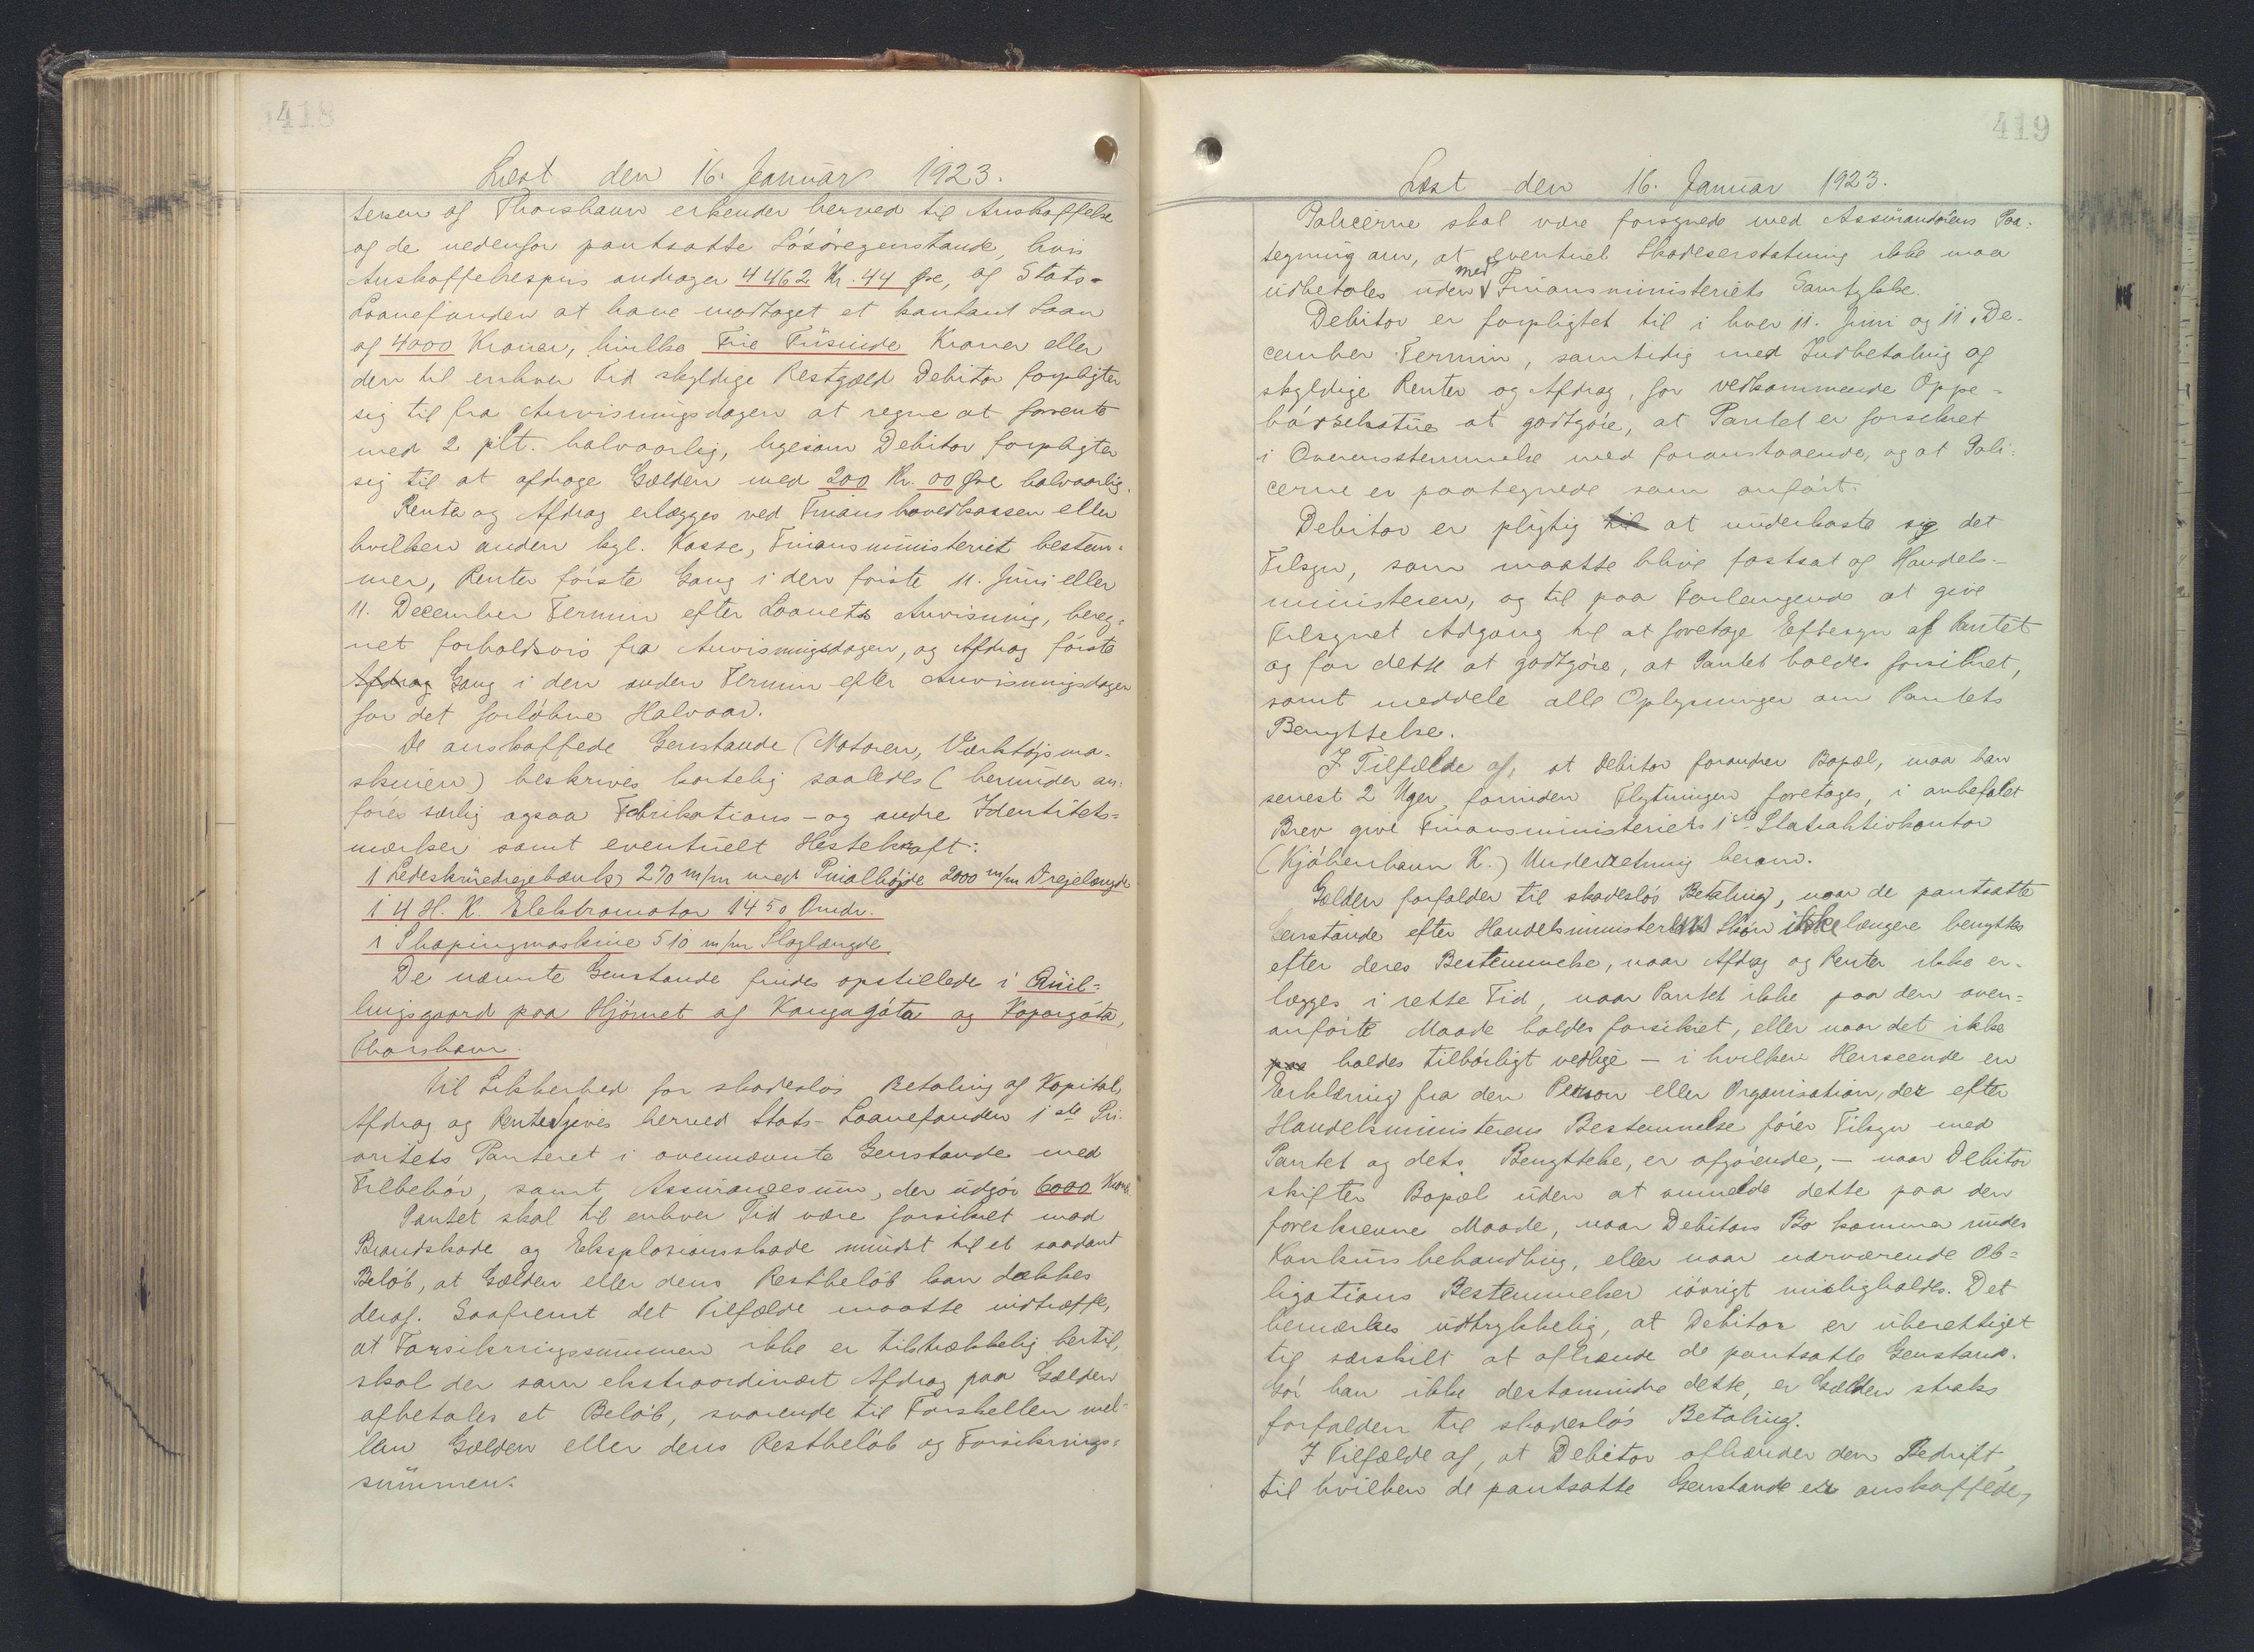 418
Læst den 16. Januar 1923.
tersen af Thorshavn erkender herved til Anskaffelse
af de nedenfor pantsatte Løsøregenstande, hvis
Anskaffelsespris andrager 4462 Kr. 44 Øre, af Stats-
Laanefonden at have modtaget et kontant Laan
af 4000 Kroner, hvilke Fire Tusinde Kroner eller
den til enhver Tid skyldige Restgæld Debitor forpligter
sig til fra Anvisningsdagen at regne at forrente
med 2 pCt. halvaarlig, ligesom Debitor forpligter
sig til at afdrage Gælden med 200 Kr. 00 Øre halvaarlig.
Renter og Afdrag erlægges ved Finanshovedkassen eller
hvilken anden kgl. Kasse, Finansministeriet bestem-
mer, Renter første Gang i den første 11. Juni eller
11. December Termin efter Laanets Anvisning, bereg-
net forholdsvis fra Anvisningsdagen, og Afdrag første
Afdrag Gang i den anden Termin efter Anvisningsdagen
for det forløbne Halvaar.
De anskaffede Genstande (Motoren, Værktøjsma-
skinen) beskrives kortelig saaledes (herunder an-
føres særlig ogsaa Fabrikations- og andre Identitets-
mærker samt eventuelt Hestekraft:
1 Ledeskruedrejebænk 270 m/m med Pinolhøjde 2000 m/m Drejelængde
1 4 H. K. Elektromotor 1450 Omdr.
1 Shapingmaskine 510 m/m Slaglængde
De nævnte Genstande findes opstillede i Quil-
lingsgaard paa Hjørnet af Kongagøta og Kopargøta,
Thorshavn.
Til Sikkerhed for skadesløs Betaling af Kapital,
Afdrag og Renter gives herved Stats-Laanefonden 1ste Pri-
oritets Panteret i ovennævnte Genstande med
Tilbehør, samt Assurancesum, der udgør 6000 Kroner.
Pantet skal til enhver Tid være forsikret mod
Brandskade og Eksplosionsskade mindst til et saadant
Beløb, at Gælden eller dens Restbeløb kan dækkes
deraf. Saafremt det Tilfælde maatte indtræffe,
at Forsikringssummen ikke er tilstrækkelig hertil,
skal der som ekstraordinært Afdrag paa Gælden
afbetales et Beløb, svarende til Forskellen mel-
lem Gælden eller dens Restbeløb og Forsikrings-
summen.
419
Læst den 16. Januar 1923.
Policerne skal være forsynede med Assurandørens Paa-
tegning om, at eventuel Skadeserstatning ikke maa
udbetales uden med Finansministeriets Samtykke.
Debitor er forpligtet til i hver 11. Juni og 11. De-
cember Termin, samtidig med Indbetaling af
skyldige Renter og Afdrag, for vedkommende Oppe-
børselsstue at godtgøre, at Pantet er forsikret
i Overensstemmelse med foranstaaende, og at Poli-
cerne er paategnede som anført.
Debitor er pligtig til at underkaste sig det
Tilsyn, som maatte blive fastsat af Handels-
ministeren, og til paa Forlangende at give
Tilsynet Adgang til at foretage Eftersyn af Pantet
og for dette at godtgøre, at Pantet holdes forsikret,
samt meddele alle Oplysninger om Pantets
Benyttelse.
I Tilfælde af, at Debitor forandrer Bopæl, maa han
senest 2 Uger, forinden Flytningen foretages, i anbefalet
Brev give Finansministeriets 1ste Statsaktivkontor
(Kjøbenhavn K.) Underretning herom.
Gælden forfalder til skadesløs Betaling, naar de pantsatte
Genstande efter Handelsministerens Skøn ikke længere benyttes
efter deres Bestemmelse, naar Afdrag og Renter ikke er-
lægges i rette Tid, naar Pantet ikke paa den oven-
anførte Maade holdes forsikret, eller naar det ikke
paa holdes tilbørligt vedlige - i hvilken Henseende en
Erklæring fra den Person eller Organisation, der efter
Handelsministerens Bestemmelse fører Tilsyn med
Pantet og dets Benyttelse, er afgørende, - naar Debitor
skifter Bopæl uden at anmelde dette paa den
foreskrevne Maade, naar Debitors Bo kommer under
Konkursbehandling, eller naar nærværende Ob-
ligations Bestemmelser iøvrigt misligholdes. Det
bemærkes udtrykkelig, at Debitor er uberettiget
til særskilt at afhænde de pantsatte Genstand.
Gør han ikke destomindre dette, er Gælden straks
forfalden til skadesløs Betaling.
I Tilfælde af, at Debitor afhænder den Bedrift,
til hvilken de pantsatte Genstande er anskaffede,